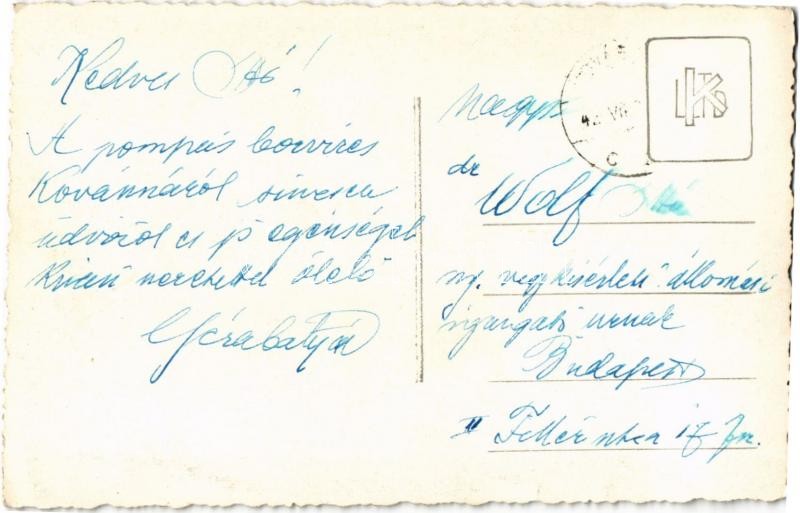 Kedves Ottó!
A pompás borvizes
Kovásznáról szívesen
üdvözöl és jó egészséget
kíván szeretettel ölelő
Gézabátyád
Nagys
dr
Wolf Ottó
ny. vegykisérleti állomási
igazgató urnak
Budapest
II Fillér utca 17
43 VII
LKTD